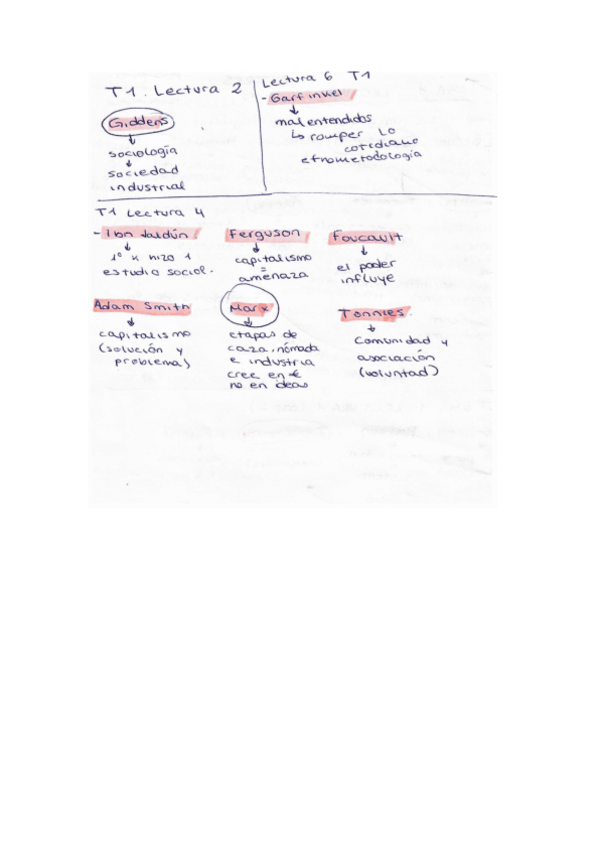 T1. Lectura 2
Giddens
↓
sociología
↓
sociedad
industrial
Lectura 6 T1
- Garfinkel
↓
malentendidos
↳ romper lo
cotidiano
etnometodología
T1 Lectura 4
- Ibn Jaldún:
↓
1º k hizo 1
estudio social.
Ferguson
↓
capitalismo
=
amenaza
Foucault
↓
el poder
influye
Adam Smith
↓
capitalismo
(solución y
problema)
Marx
↓
etapas de
caza, nómada
e industria
cree en €
no en ideas
Tönnies.
↓
Comunidad y
asociación
(voluntad)